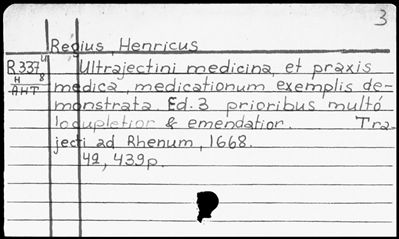 3
Regius, Henricus
R337u Ultrajectini medicina, et praxis
H 8 medica, medicationum exemplis de-
AHT monstrata. Ed. 3 prioribus multó
locupletior & emendatior. Tra-
jecti ad Rhenum, 1668.
42, 439p.